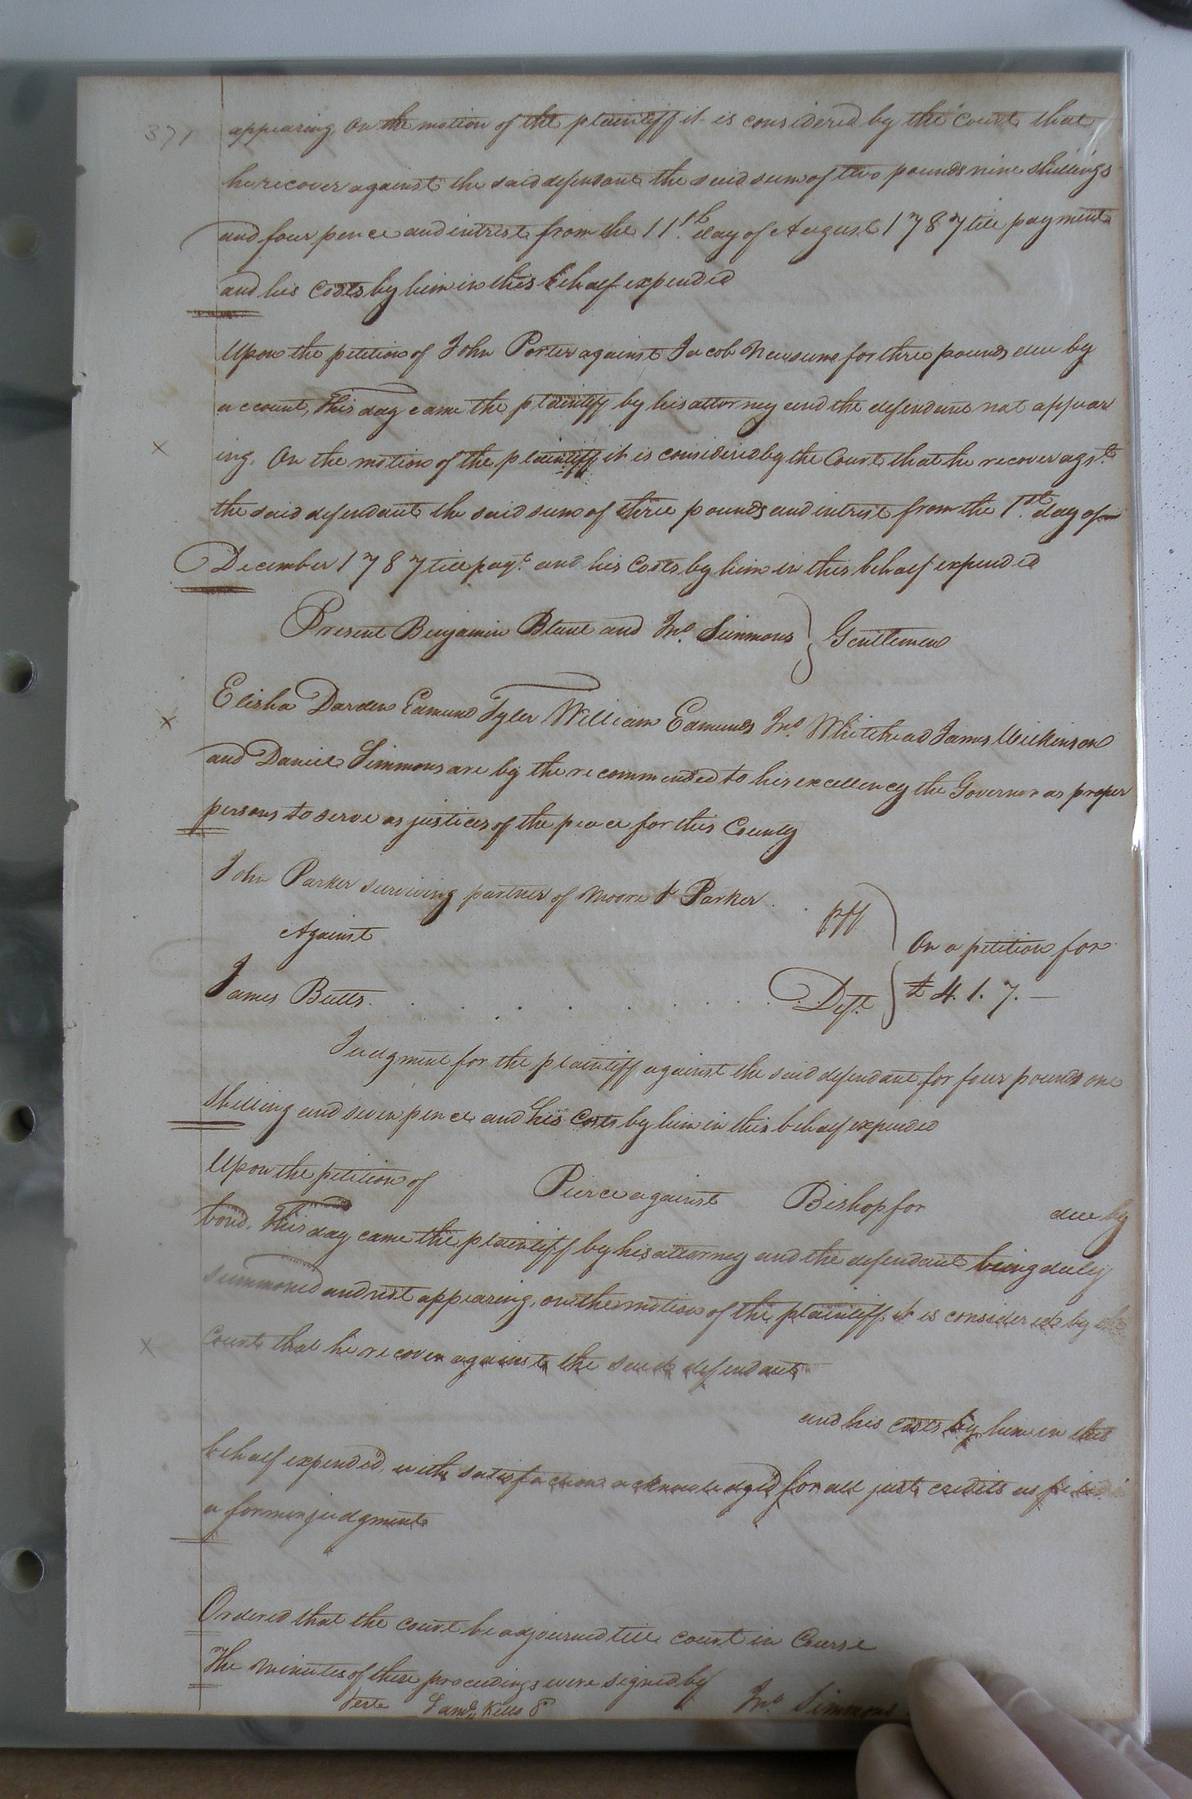 371
appearing On the motion of the plaintiff it is considered by the Court that
he recover against the said defendant the said sum of two pounds nine shillings
and four pence and intrest from the 11th. day of August 1787 till payment
and his Costs by him in this behalf expended
Upon the petition of John Porter against Jacob Newsume for three pounds due by
account, This day came the plaintiff by his attorney and the defendant not appear
ing. On the motion of the plaintiff it is considered by the Court that he recover agst.
the said defendant the said sum of three pounds and intrest from the 1st. day of
December 1787 till payt. and his Costs by him in this behalf expended
Present Benjamin Blunt and Jno. Simmons } Gentlemen
Elisha Darden Edmund Tyler William Edmunds Jno. Whitehead James Wilkinson
and Daniel Simmons are by the recommended to his excellency the Governor as proper
persons to serve as justices of the peace for this County
John Parker surviving partner of Moore & Parker . . plf
Against
On a petition for
James Butts . . . . . . . . Deft. } £ 4. 1. 7. —
Judgment for the plaintiff against the said defendant for four pounds one
shilling and seven pence and his Costs by him in this behalf expended
Upon the petition of Pierce against Bishop for due by
bond. This day came the plaintiff by his attorney and the defendant being duly
summoned and not appearing, on the motion of the plaintiff it is considered by the
Court that he recover against the said defendant
and his costs by him in this
behalf expended, with satisfaction acknowledged for all just credits as
a former judgment
Ordered that the court be adjourned till court in Course
The Minutes of these proceedings were signed by
Teste Saml. Kello Jno. Simmons